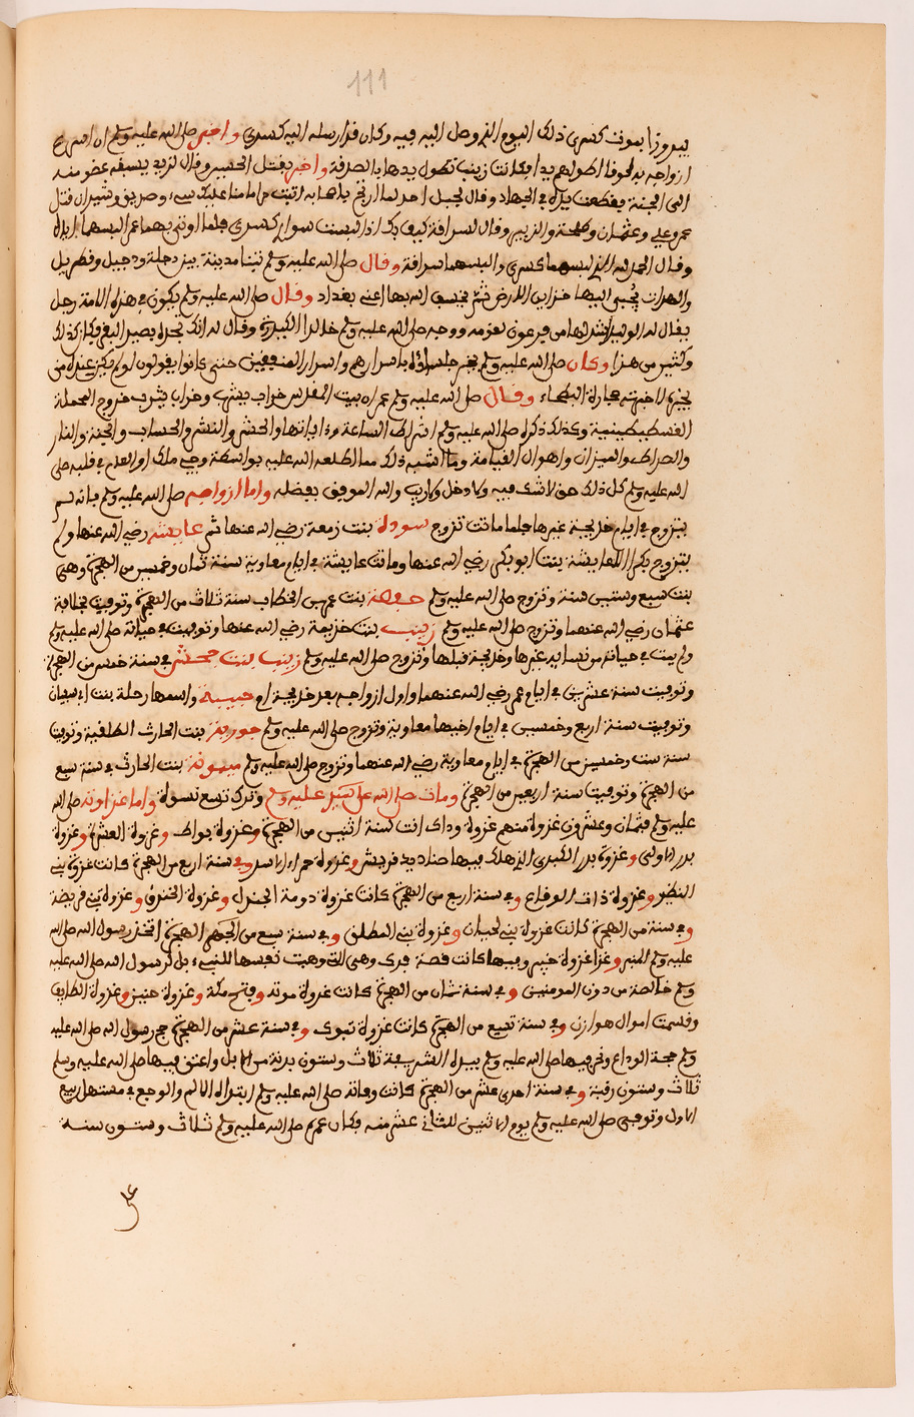 111
بيروزا بموت كسرى ذلك اليوم الذي وصل اليه فيه وكان قد ارسله اليه كسرى واخبر صلى الله عليه وسلم ان اسرع
ازواجه به لحوقا اطولهم يدا فكانت زينب تطول يدها بالصدقة واخبر بقتل الحسين وقال لزيد يسبقه عضو منه
الى الجنة فقطعت يده في الجهاد وقال لجبل احد لما ارتج بهم اثبت فانما عليك نبيء وصديق وشهيدان فقتل
عمر وعلي وعثمان وطلحة والزبير وقال لسراقة كيف بك اذا لبست سواري كسرى فلما اوتي بهما عمر البسهما اياه
وقال الحمد لله الذي لبسهما كسرى والبسهما سراقة وقال صلى الله عليه وسلم تبنا مدينة بين دجلة ودجيل وقطربل
والصرات يُجبى اليها خزاين الارض ثم يخسف الله بها اعني بغداد وقال صلى الله عليه وسلم يكون في هذه الامة رجل
يقال له الوليد اشر لها من فرعون لقومه ووجه صلى الله عليه وسلم خالدا لاكيدر وقال له انك تجده يصيد البقر فكان كذلك
وكثير من هذا وكان صلى الله عليه وسلم يخبر جلساؤه باسرارهم واسرار المنافقين حتى كانوا يقولون لو لم يكن عنده من
يخبره لاخبرته حجارة البطحاء وقال صلى الله عليه وسلم عمران بيت المقدس خراب يثرب وخراب يثرب خروج الملحمة
القسطنطينية وكذلك ذكر صلى الله عليه وسلم اشراط الساعة وءاياتها والحشر والنشر والحساب والجنة والنار
والصراط والميزان واهوال القيامة وما اشبه ذلك مما اطلعه الله عليه بواسطة وحي ملك او القاء في قلبه صلى
الله عليه وسلم كل ذلك حق لا شك فيه ولا دخل ولا ريب والله الموفق بفضله واما ازواجه صلى الله عليه وسلم فانه لم
يتزوج في ايام خديجة غيرها فلما ماتت تزوج سودة بنت زمعة رضي الله عنها ثم عايشة رضي الله عنها ولم
يتزوج بكرا الا عايشة بنت ابو بكر رضي الله عنها وماتت عايشة في ايام معاوية سنة ثمان وخمسين من الهجرة وهي
بنت سبع وستين سنة وتزوج صلى الله عليه وسلم حفصة بنت عمر بن الخطاب سنة ثلاث من الهجرة وتوفيت بخلافة
عثمان رضي الله عنهما وتزوج صلى الله عليه وسلم زينب بنت خزيمة رضي الله عنها وتوفيت في حياته صلى الله عليه وسلم
ولم يمت في حياته من نسايه غيرها وخديجة قبلها وتزوج صلى الله عليه وسلم زينب بنت جحش في سنة خمس من الهجرة
وتوفيت سنة عشرين في ايام عمر رضي الله عنهما واول ازواجه بعد خديجة ام حبيبة واسمها رحلة بنت ابي سفيان
وتوفيت سنة اربع وخمسين في ايام اخيها معاوية وتزوج صلى الله عليه وسلم جورية بنت الحارث الطلقية وتوفيت
سنة ست وخمسين من الهجرة في ايام معاوية رضي الله عنهما وتزوج صلى الله عليه وسلم ميمونة بنت الحارث في سنة سبع
من الهجرة وتوفيت سنة اربعين من الهجرة ومات صلى الله على سيدنا عليه وسلم وترك تسع نسوة واما غزاوته صلى الله
عليه وسلم فثمان وعشرون غزوة منهم غزوة ودان انت سنة اثنين من الهجرة وغزوة بواط وغزوة العشيرة وغزوة
بدر الاولى وغزوة بدر الكبرى الذي هلك فيها صناديد قريش وغزوة حمراء الاسد وفي سنة اربع من الهجرة كانت غزوة بني
النظير وغزوة ذات الرقاع وفي سنة اربع من الهجرة كانت غزوة دومة الجندل وغزوة الخندق وغزوة بني قريضة
وفي سنة من الهجرة كانت غزوة بني لحيان وغزوة بني المطلق وفي سنة سبع من الهجرة اتخذ رسول الله صلى الله
عليه وسلم المنبر وغزا غزوة خيبر وفيها كانت قصة فدك وهي التي وهبت نفسها للنبيء بل لرسول الله صلى الله عليه
وسلم خالصة من دون المومنين وفي سنة ثمان من الهجرة كانت غزوة موتة وفتح مكة وغزوة حنين وغزوة الطايف
وقسمت اموال هوازن وفي سنة تسع من الهجرة كانت غزوة تبوك وفي سنة عشر من الهجرة حج رسول الله صلى الله عليه
وسلم حجة الوداع ونحر فيها صلى الله عليه وسلم بيده الشريفة ثلاث وستون بدنة من الابل واعتق فيها صلى الله عليه وسلم
ثلاث وستون رقبة وفي سنة احدى عشر من الهجرة كانت وفاته صلى الله عليه وسلم ابتداه الالم والوجع في مستهل ربيع
الاول وتوفي صلى الله عليه وسلم يوم الاثنين للثاني عشر منه فكان عمره صلى الله عليه وسلم ثلاث وستون سنة